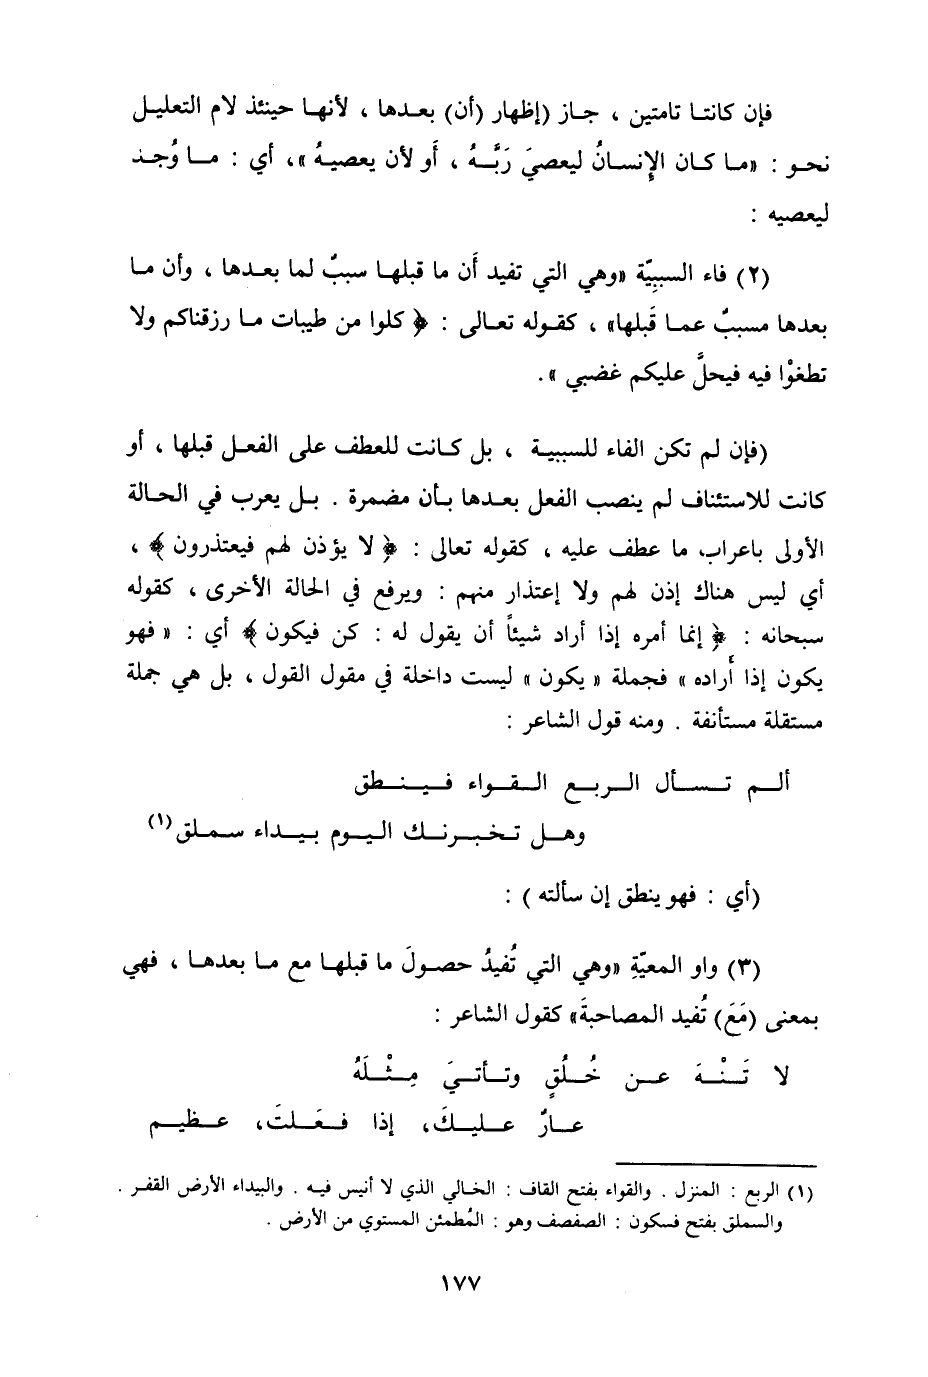 فإن كانتا تامتين ، جاز (إظهار (أن) بعدها ، لأنها حينئذ لام التعليل
نحو : «ما كان الإنسانُ ليعصيَ رَبَّهُ ، أَو لأن يعصيهُ »، أي : ما وُجد
ليعصيه :
(٢) فاء السببيّة «وهي التي تفيد أَن ما قبلها سببٌ لما بعدها ، وأن ما
بعدها مسببٌ عما قَبلها» ، كقوله تعالى : ﴿ كلوا من طيبات ما رزقناكم ولا
تطغوْا فيه فيحلَّ عليكم غضبي ».
(فإن لم تكن الفاء للسببية ، بل كانت للعطف على الفعل قبلها ، أو
كانت للاستئناف لم ينصب الفعل بعدها بأن مضمرة . بل يعرب في الحالة
الأولى باعراب ما عطف عليه ، كقوله تعالى : ﴿ لا يؤذن لهم فيعتذرون ﴾ ،
أي ليس هناك إذن لهم ولا إعتذار منهم : ويرفع في الحالة الأخرى ، كقوله
سبحانه : ﴿ إنما أمره إذا أراد شيئاً أن يقول له : كن فيكون ﴾ أي : « فهو
يكون إذا أراده » فجملة « يكون » ليست داخلة في مقول القول ، بل هي جملة
مستقلة مستأنفة . ومنه قول الشاعر :
ألم تسأل الربع القواء فينطق
وهل تخبرنك اليوم بيداء سملق(١)
(أي : فهو ينطق إن سألته ) :
(٣) واو المعيّةِ «وهي التي تُفيدُ حصولَ ما قبلها مع ما بعدها ، فهي
بمعنى (مَعَ) تُفيد المصاحبةَ» كقول الشاعر :
لا تَنْهَ عن خُلُقٍ وتأتيَ مِثْلَهُ
عارٌ عليكَ، إذا فَعَلتَ، عظيم
(١) الربع : المنزل . والقواء بفتح القاف : الخالي الذي لا أنيس فيه . والبيداء الأرض القفر .
والسملق بفتح فسكون : الصفصف وهو : المُطمئن المستوي من الأرض .
١٧٧